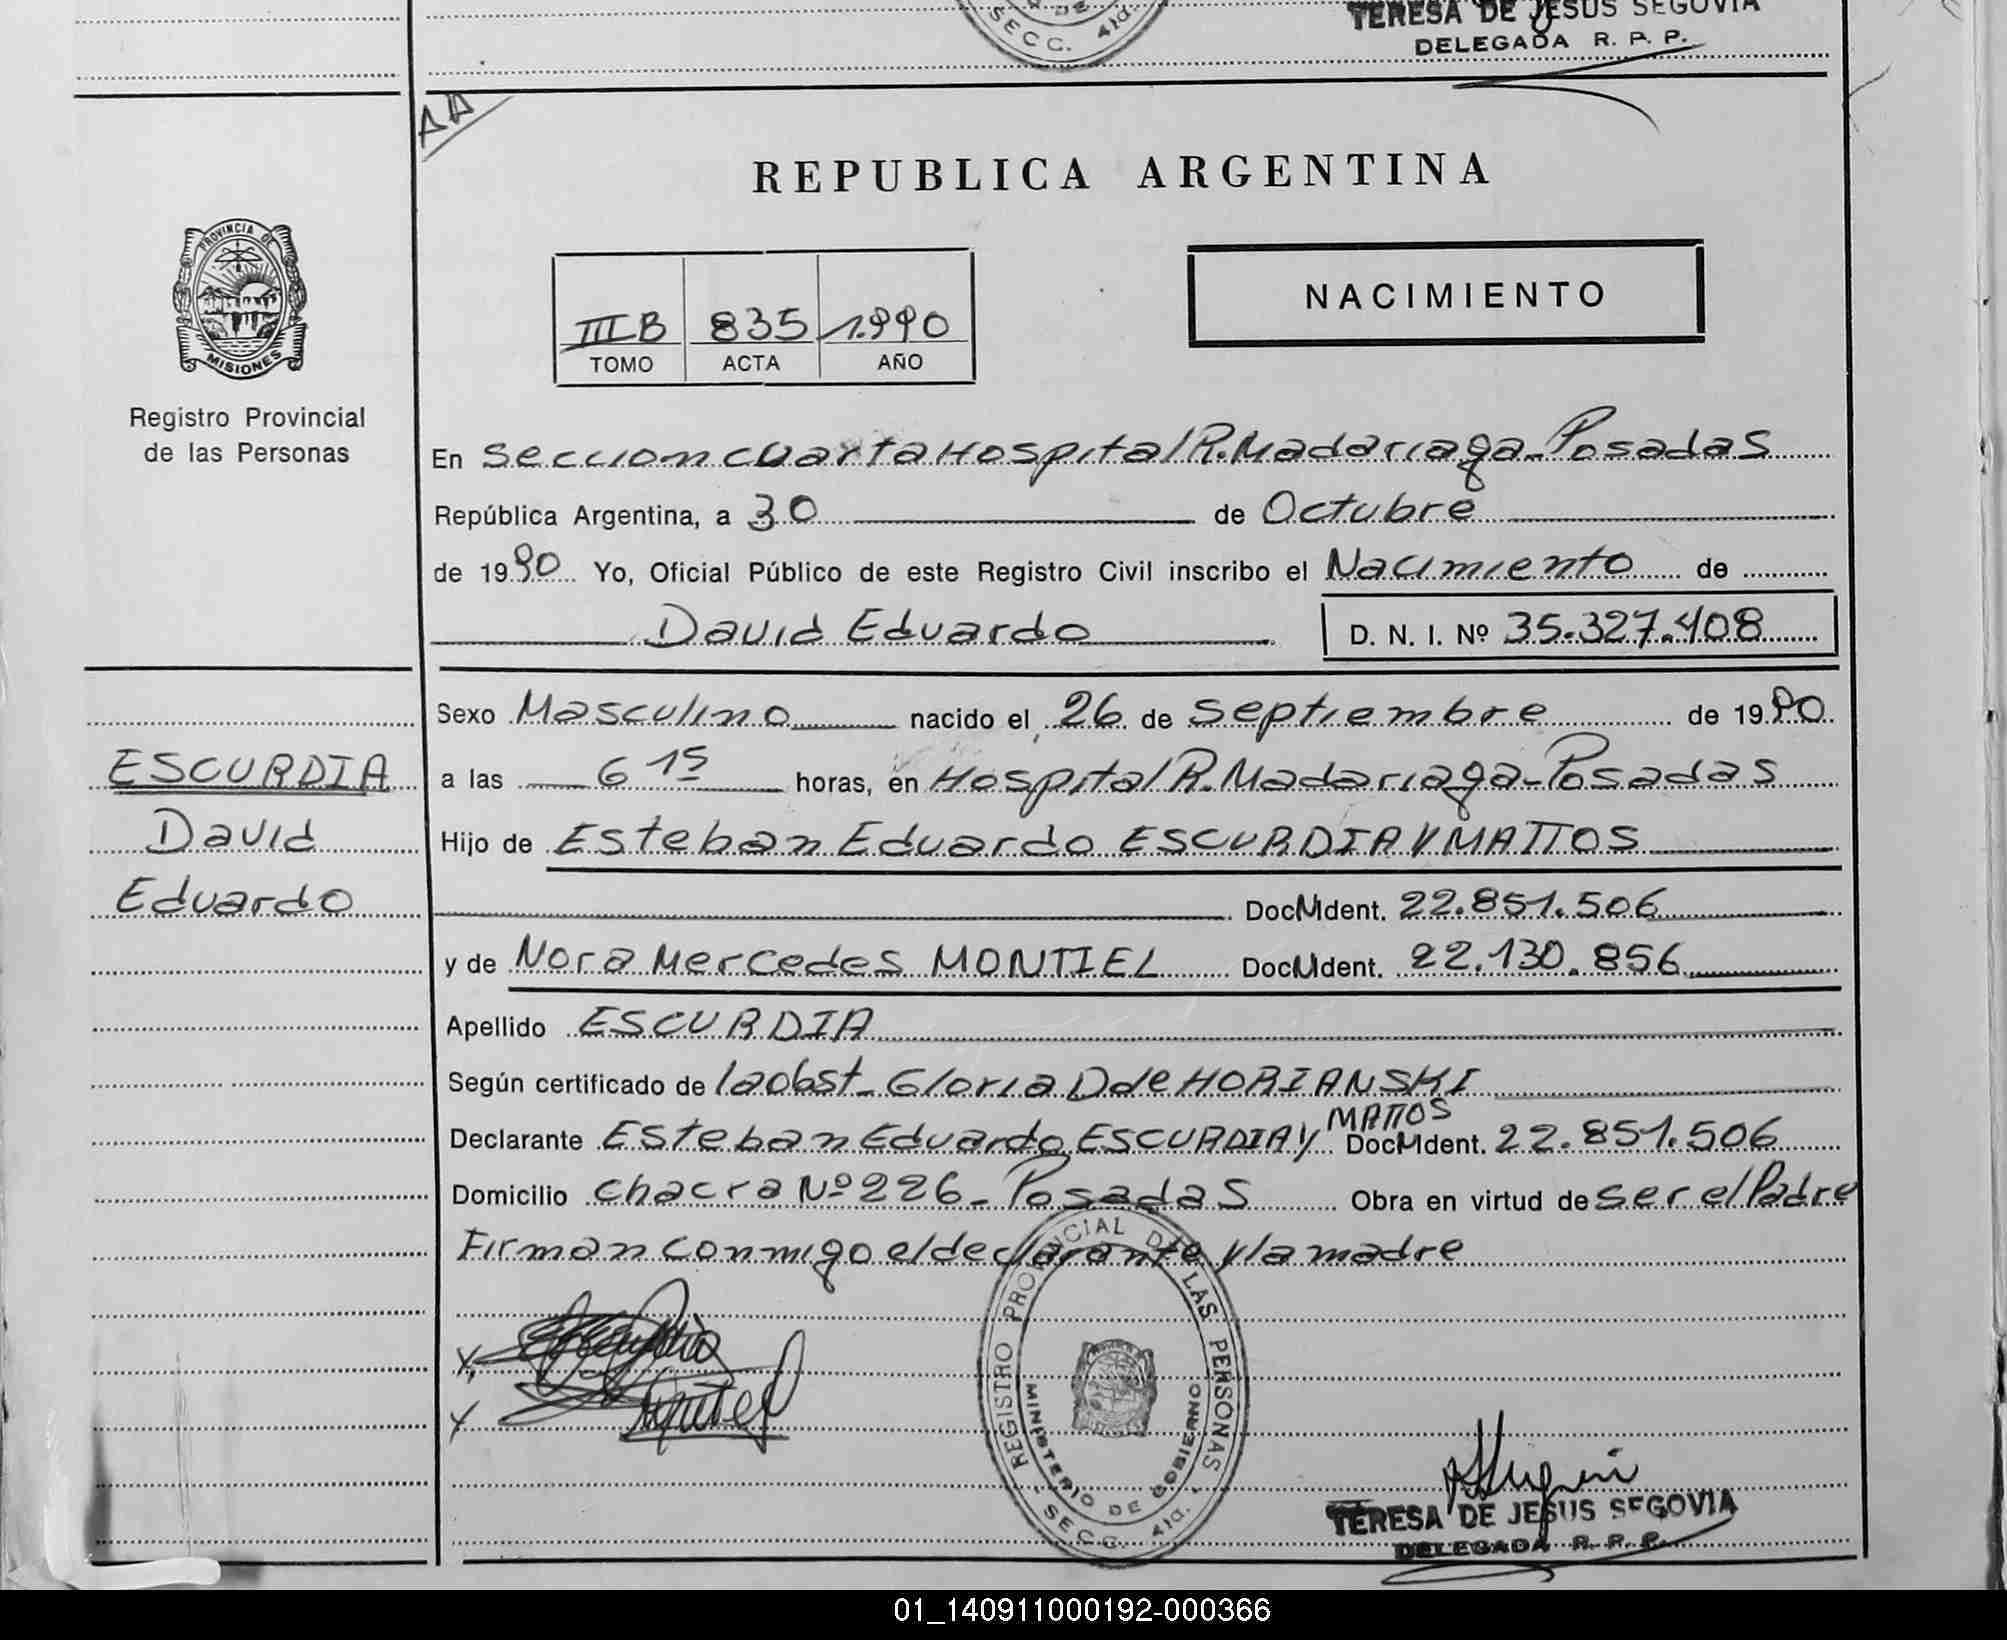 SECC. 4ta.
TERESA DE JESUS SEGOVIA
DELEGADA R. P. P.
AA
REPUBLICA ARGENTINA
PROVINCIA DE
MISIONES
Registro Provincial
de las Personas
III B 835 1.990
TOMO ACTA AÑO
NACIMIENTO
En Seccion cuarta Hospital R. Madariaga - Posadas
República Argentina, a 30 de Octubre
de 1990 Yo, Oficial Público de este Registro Civil inscribo el Nacimiento de
David Eduardo D. N. I. Nº 35.327.408
Sexo Masculino nacido el 26 de Septiembre de 1990
ESCURDIA
David
Eduardo
a las 6 15 horas, en Hospital R. Madariaga - Posadas
Hijo de Esteban Eduardo ESCURDIA Y MATTOS
Doc M Ident. 22.851.506
y de Nora Mercedes MONTIEL Doc M Ident. 22.130.856
Apellido ESCURDIA
Según certificado de la obst - Gloria D de HORIANSKI
Declarante Esteban Eduardo ESCURDIA y MATTOS Doc M Ident. 22.851.506
Domicilio chacra Nº 226 - Posadas Obra en virtud de ser el Padre
Firman conmigo el declarante y la madre
REGISTRO PROVINCIAL DE LAS PERSONAS - SECC. 4ta. -
MINISTERIO DE GOBIERNO
TERESA DE JESUS SEGOVIA
DELEGADA R. P. P.
01_140911000192-000366